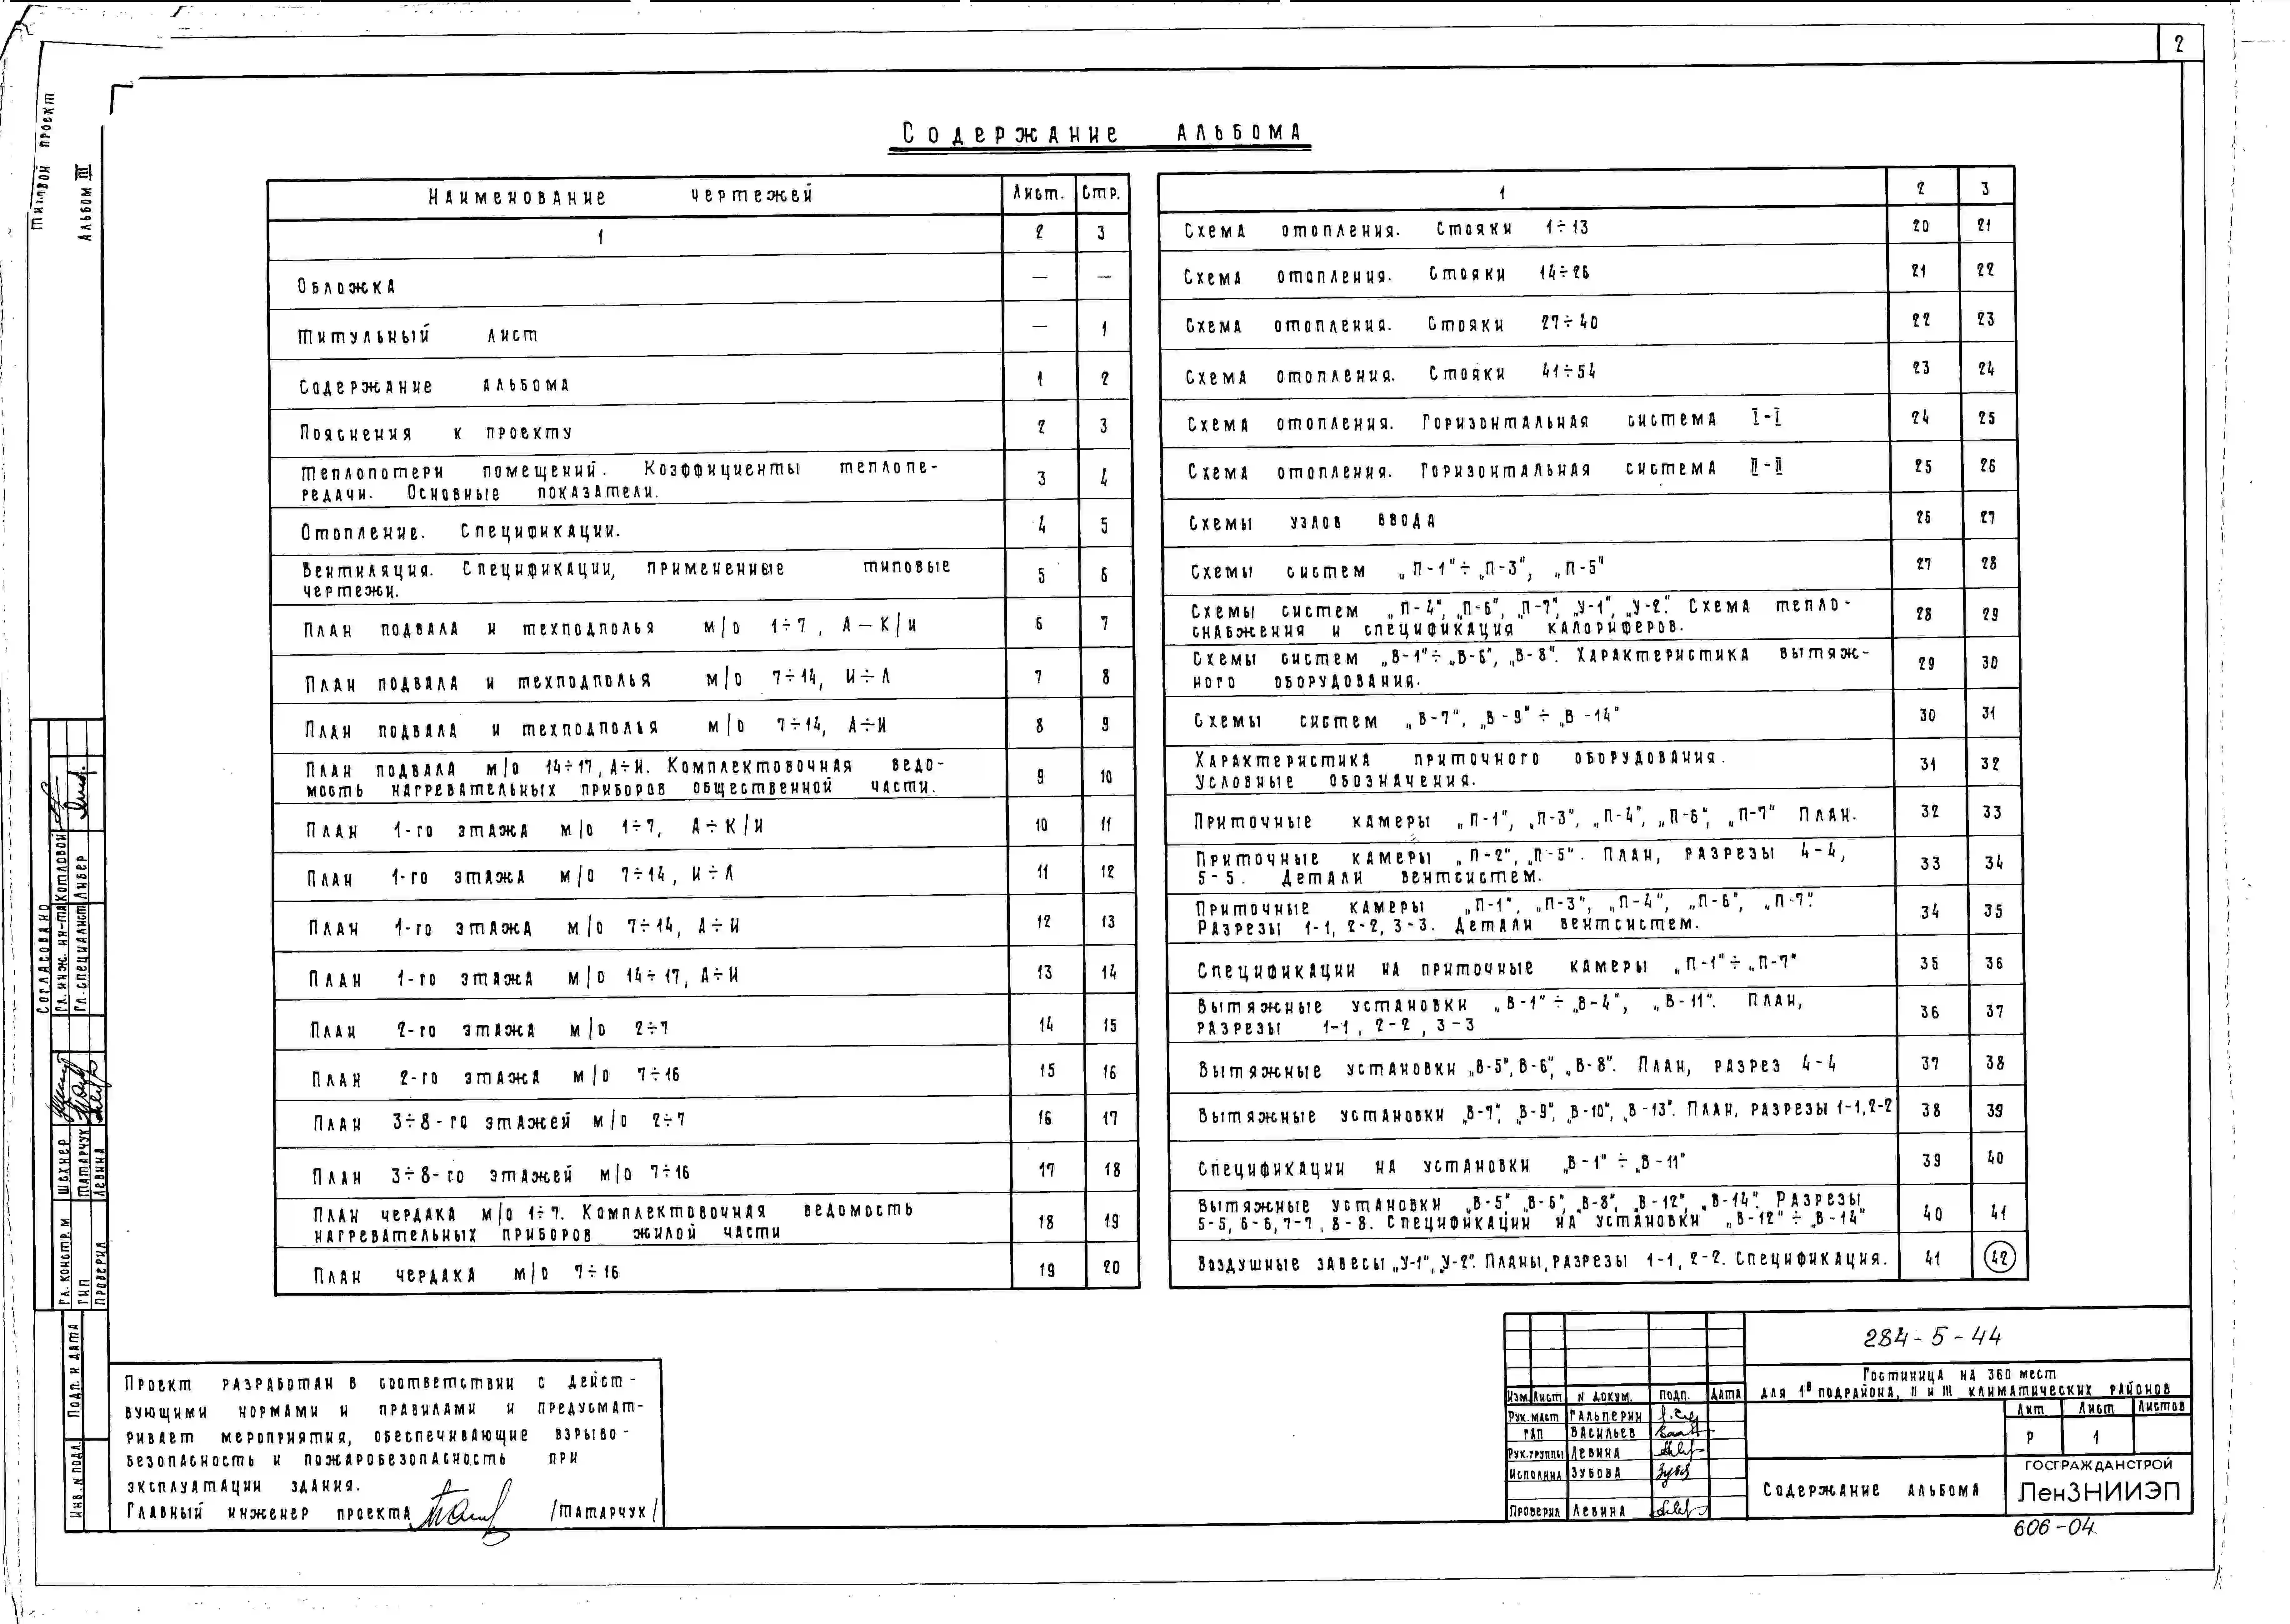 2
Типовой проект
Альбом III
Содержание альбома
Наименование чертежей Лист. Стр.
1 2 3
Обложка — —
Титульный лист — 1
Содержание альбома 1 2
Пояснения к проекту 2 3
Теплопотери помещений. Коэффициенты теплопе-
редачи. Основные показатели. 3 4
Отопление. Спецификации. 4 5
Вентиляция. Спецификации, примененные типовые
чертежи. 5 6
План подвала и техподполья м/о 1÷7, А—К/и 6 7
План подвала и техподполья м/о 7÷14, И÷Л 7 8
План подвала и техподполья м/о 7÷14, А÷И 8 9
План подвала м/о 14÷17, А÷И. Комплектовочная ведо-
мость нагревательных приборов общественной части. 9 10
План 1-го этажа м/о 1÷7, А÷К/И 10 11
План 1-го этажа м/о 7÷14, И÷Л 11 12
План 1-го этажа м/о 7÷14, А÷И 12 13
План 1-го этажа м/о 14÷17, А÷И 13 14
План 2-го этажа м/о 2÷7 14 15
План 2-го этажа м/о 7÷16 15 16
План 3÷8-го этажей м/о 2÷7 16 17
План 3÷8-го этажей м/о 7÷16 17 18
План чердака м/о 1÷7. Комплектовочная ведомость
нагревательных приборов жилой части 18 19
План чердака м/о 7÷16 19 20
1 2 3
Схема отопления. Стояки 1÷13 20 21
Схема отопления. Стояки 14÷26 21 22
Схема отопления. Стояки 27÷40 22 23
Схема отопления. Стояки 41÷54 23 24
Схема отопления. Горизонтальная система I-I 24 25
Схема отопления. Горизонтальная система II-II 25 26
Схемы узлов ввода 26 27
Схемы систем „П-1"÷„П-3", „П-5" 27 28
Схемы систем „П-4", „П-6", „П-7", „У-1", „У-2". Схема тепло-
снабжения и спецификация калориферов. 28 29
Схемы систем „В-1"÷„В-6", „В-8". Характеристика вытяж-
ного оборудования. 29 30
Схемы систем „В-7", „В-9"÷„В-14" 30 31
Характеристика приточного оборудования.
Условные обозначения. 31 32
Приточные камеры „П-1", „П-3", „П-4", „П-6", „П-7" План. 32 33
Приточные камеры „П-2", „П-5". План, разрезы 4-4,
5-5. Детали вентсистем. 33 34
Приточные камеры „П-1", „П-3", „П-4", „П-6", „П-7".
Разрезы 1-1, 2-2, 3-3. Детали вентсистем. 34 35
Спецификации на приточные камеры „П-1"÷„П-7" 35 36
Вытяжные установки „В-1"÷„В-4", „В-11". План,
разрезы 1-1, 2-2, 3-3 36 37
Вытяжные установки „В-5", В-6", „В-8". План, разрез 4-4 37 38
Вытяжные установки „В-7", „В-9", „В-10", „В-13". План, разрезы 1-1, 2-2 38 39
Спецификации на установки „В-1"÷„В-11" 39 40
Вытяжные установки „В-5", „В-6", „В-8", „В-12", „В-14". Разрезы
5-5, 6-6, 7-7, 8-8. Спецификации на установки „В-12"÷„В-14" 40 41
Воздушные завесы „У-1", „У-2". Планы, разрезы 1-1, 2-2. Спецификация. 41 42
Согласовано
Гл. инж. ин-та Котловой
Гл. специалист Либер
Гл. констр. м Шехнер
ГИП Татарчук
Проверил Левина
Подп. и дата
Инв. N подл.
Проект разработан в соответствии с дейст-
вующими нормами и правилами и предусмат-
ривает мероприятия, обеспечивающие взрыво-
безопасность и пожаробезопасность при
эксплуатации здания.
Главный инженер проекта /Татарчук/
284-5-44
Гостиница на 360 мест
для 1В подрайона, II и III климатических районов
Изм. Лист N докум. Подп. Дата
Рук. маст Гальперин
ГАП Васильев
Рук. группы Левина
Исполнил Зубова
Проверил Левина
Лит Лист Листов
Р 1
Содержание альбома
ГОСГРАЖДАНСТРОЙ
ЛенЗНИИЭП
606-04